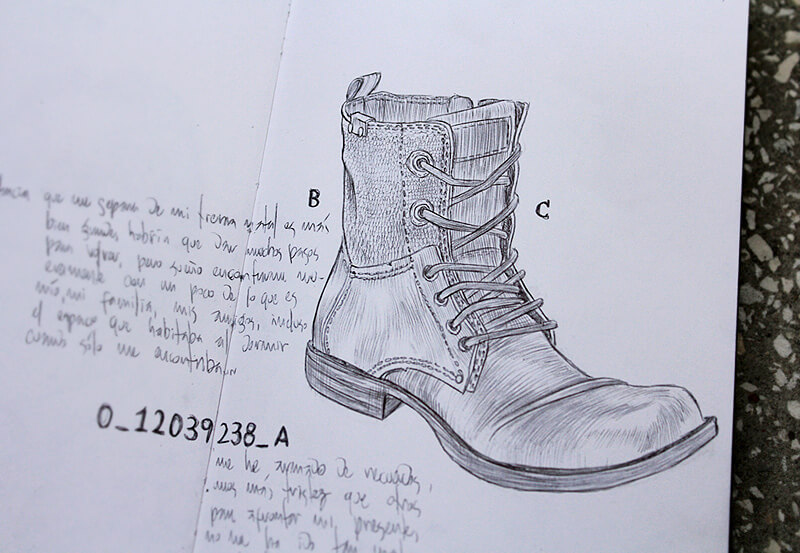 que me separa de mi tierra natal es más
bien grande, habría que dar muchos pasos
para lograr, pero sueño encontrarme nue-
vamente con un poco de lo que es
mío, mi familia, mis amigos, incluso
el espacio que habitaba al dormir
cuando sólo me encontraba
B
C
O_12039238_A
me he armado de recuerdos,
unos más tristes que otros
para afrontar mi presente,
no me ha ido tan mal